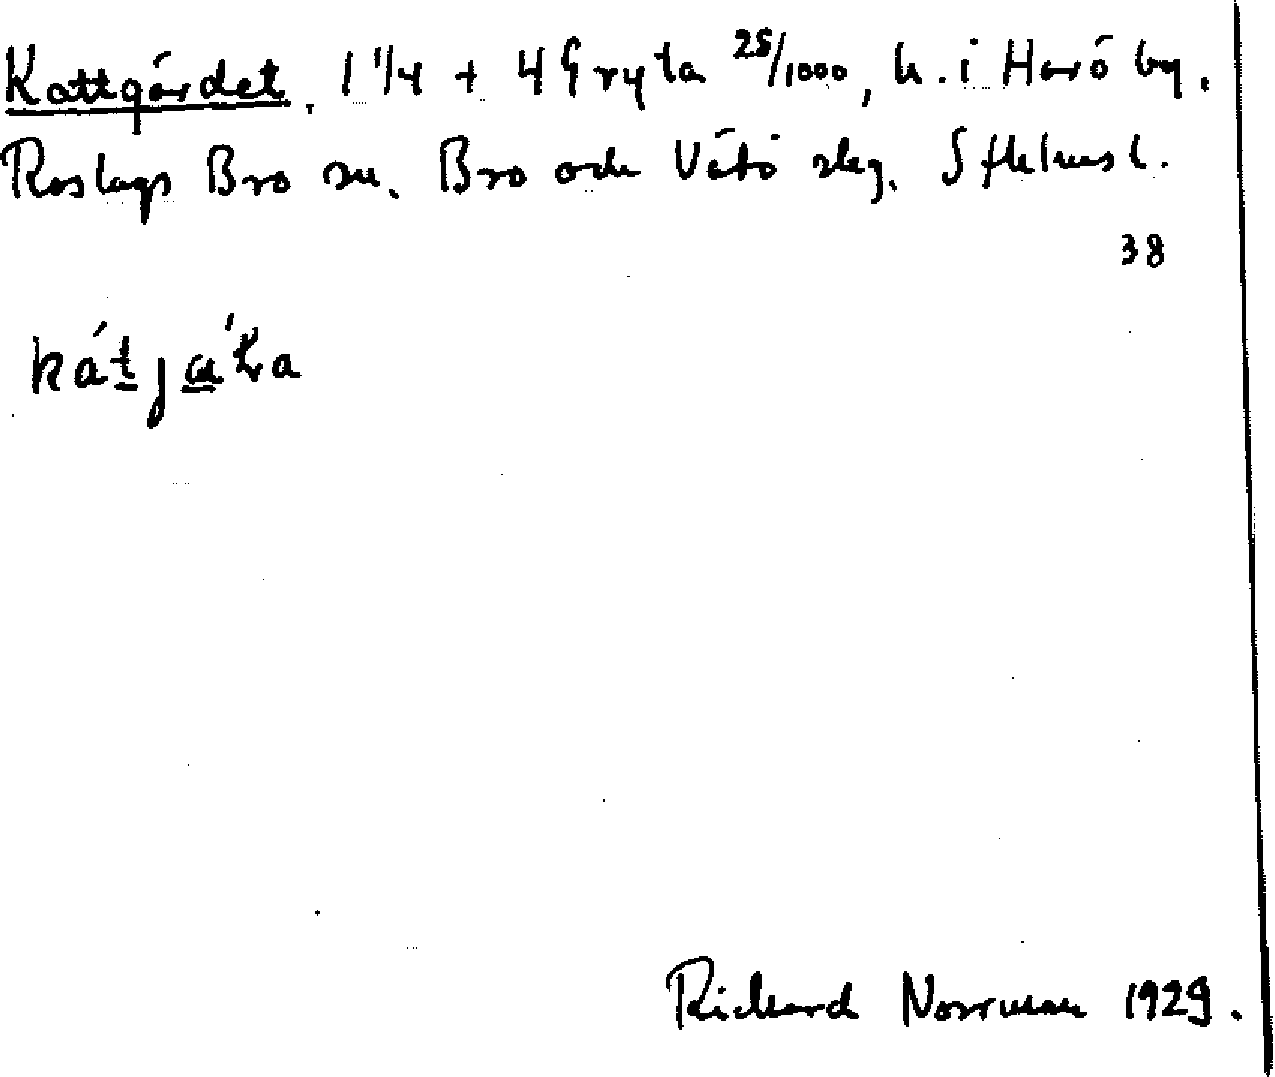 Kattgärdet. 1 1/4 + 4 Gryta 25/1000, h. i Harö by.
Roslags Bro sn. Bro och Vätö skg. Sthlms l.
38
kátja
Richard Norrman 1929.